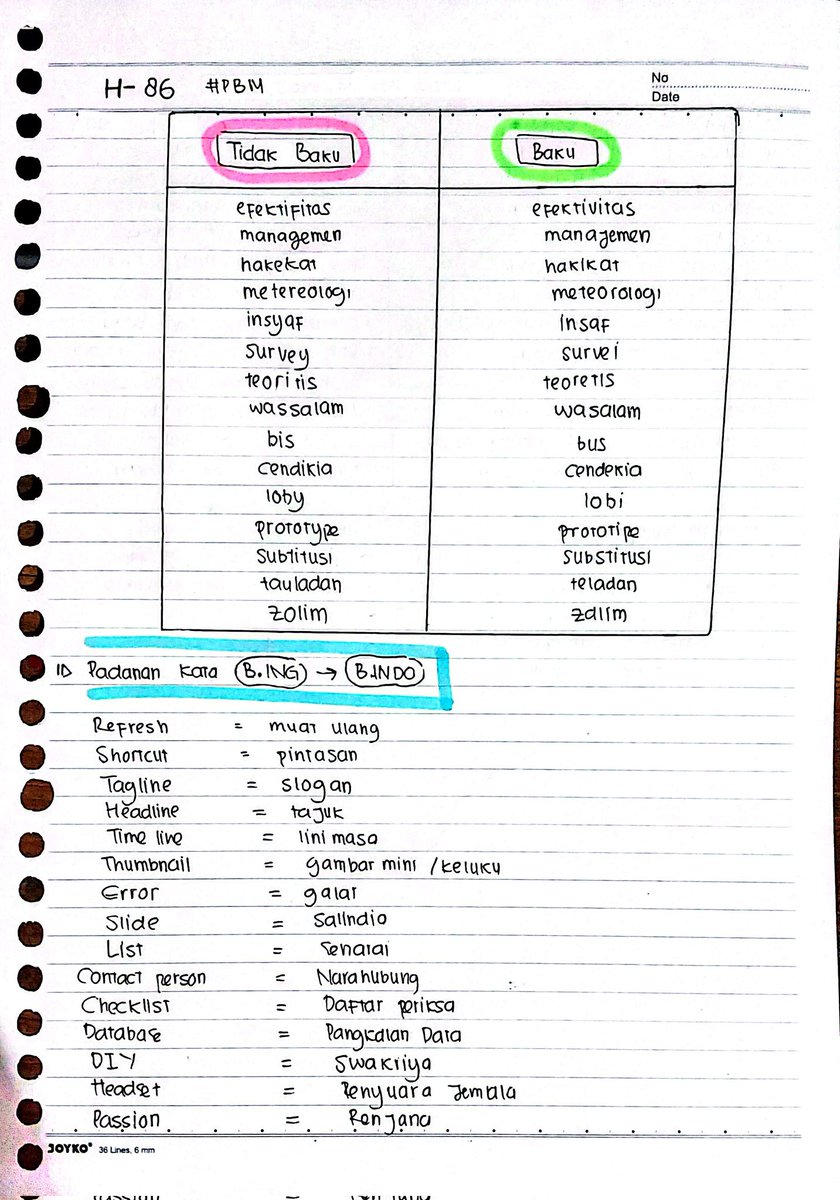 H-86 #PBM
No
Date
Tidak Baku Baku
efektifitas efektivitas
managemen manajemen
hakekat hakikat
metereologi meteorologi
insyaf insaf
survey survei
teoritis teoretis
wassalam wasalam
bis bus
cendikia cendekia
loby lobi
prototype prototipe
subtitusi substitusi
tauladan teladan
zolim zalim
Padanan kata B.ING → B.INDO
Refresh = muat ulang
Shortcut = pintasan
Tagline = slogan
Headline = tajuk
Time line = lini masa
Thumbnail = gambar mini / keluku
Error = galat
Slide = Salindia
List = Senarai
Contact person = Narahubung
Checklist = Daftar periksa
Database = Pangkalan Data
DIY = Swakriya
Headset = Penyuara Jemala
Passion = Renjana
JOYKO® 36 Lines, 6 mm